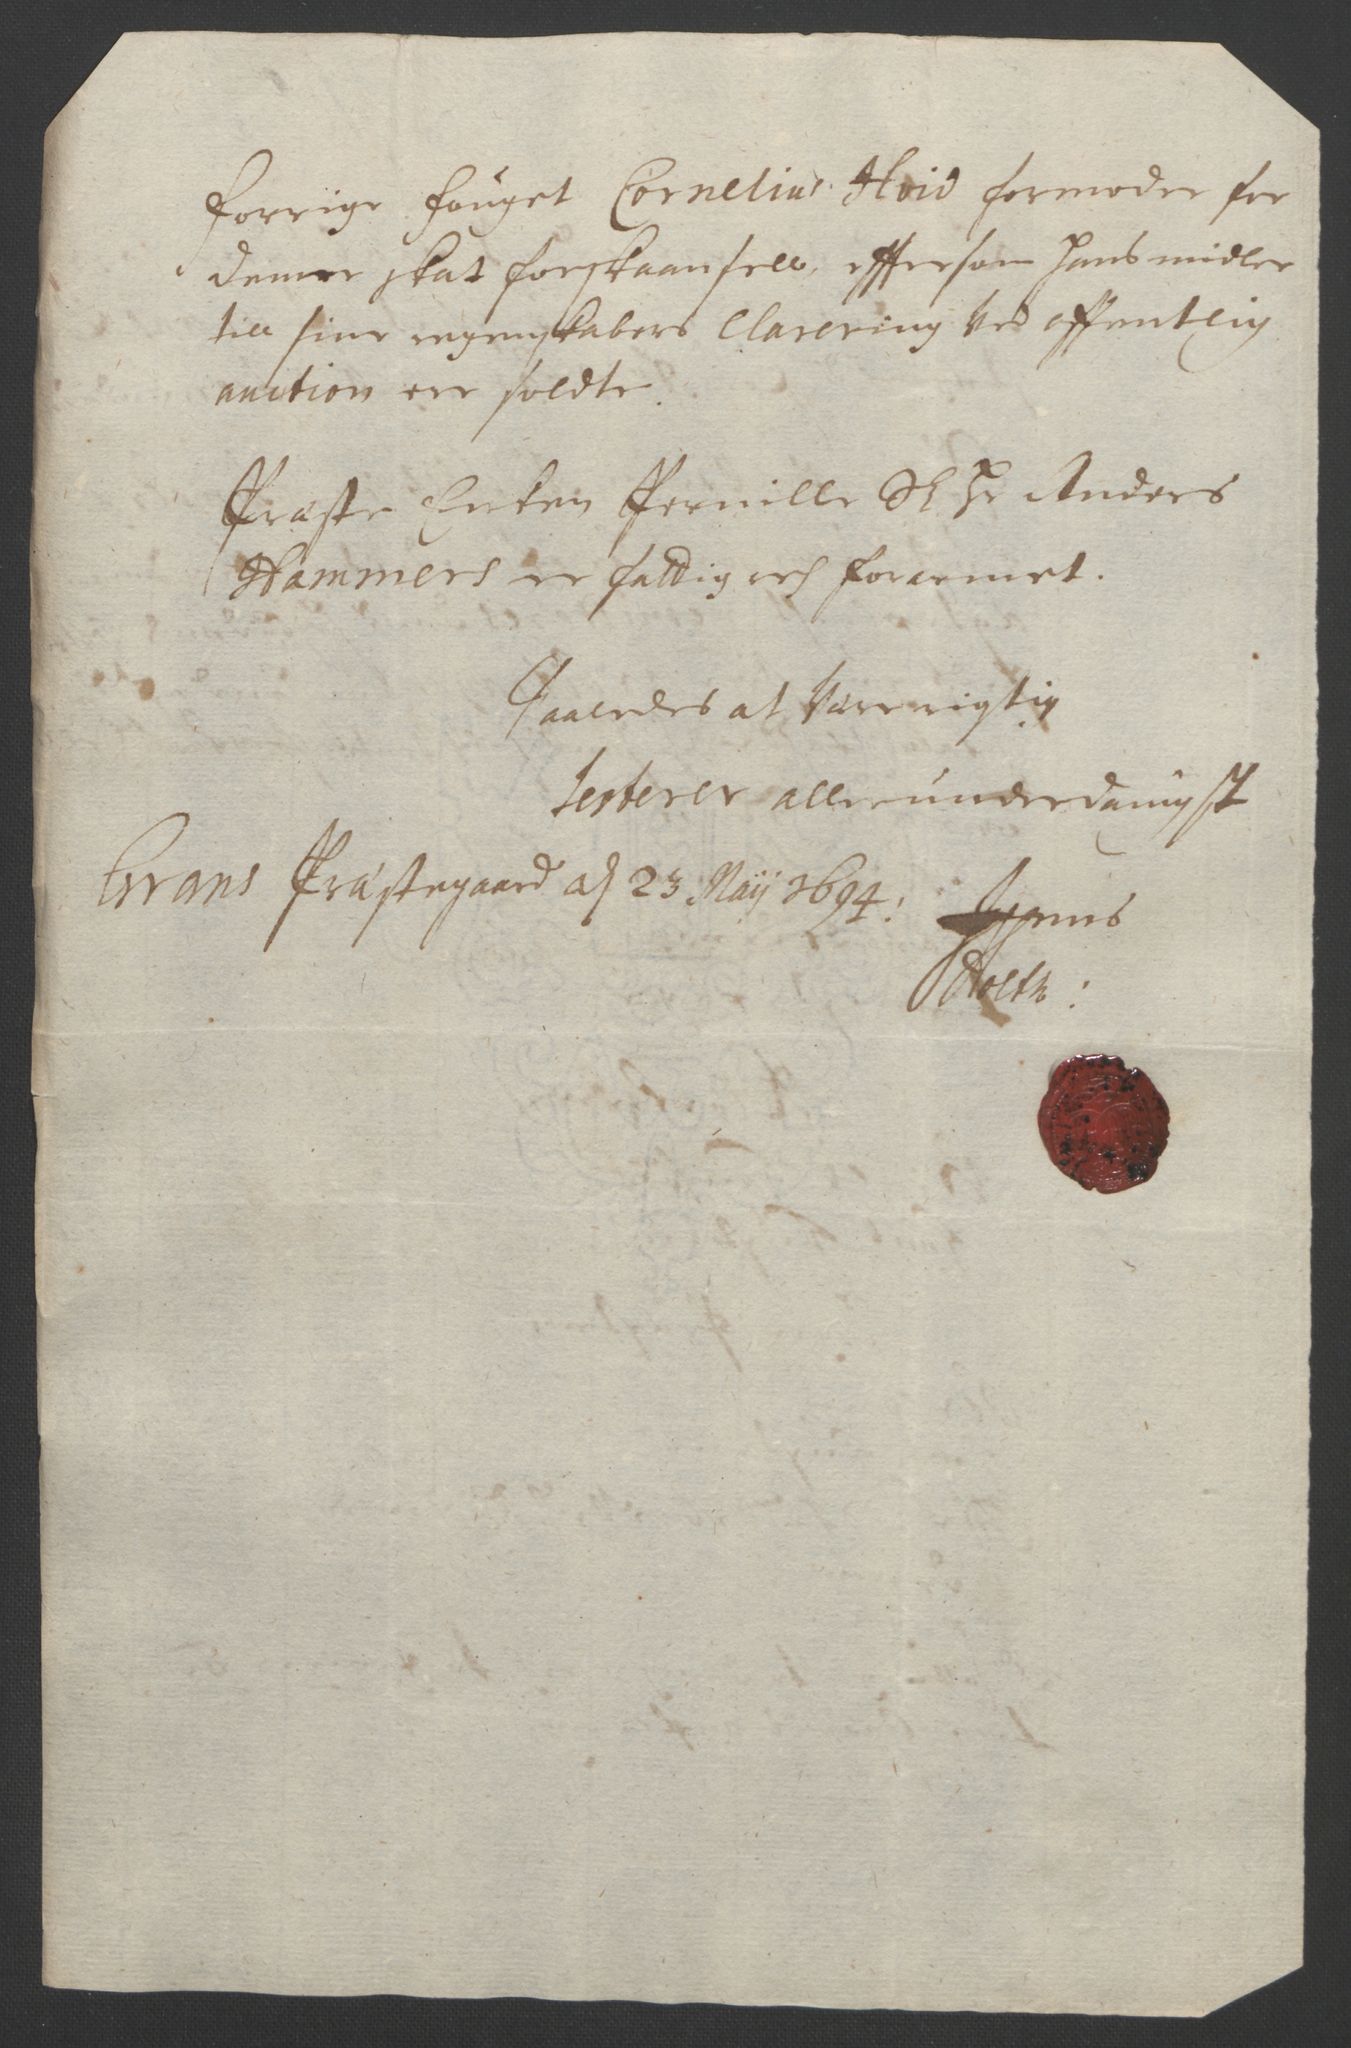 Forrige fouget Cornelius Hvid formoder for
denne skat forskaansell, efftersom hans midler
till sine regenskabers Clarering ved offentlig
auction ere soldte.
Præste Encken Pernille Sl Hr Anders
Hammers er fattig och forarmet.
Saaledes at være rigtig
testerer allerunderdanigst
Grans Præstegaard d 23 Maij 1694: